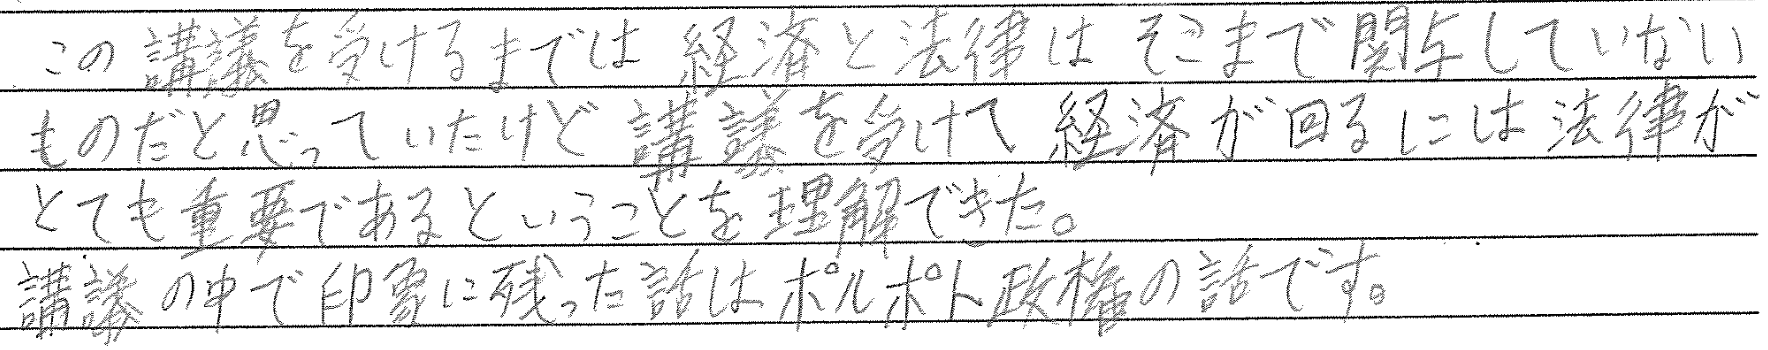 この講議を受けるまでは経済と法律はそこまで関与していない
ものだと思っていたけど講議を受けて経済が回るには法律が
とても重要であるということを理解できた。
講議の中で印象に残った話はポルポト政権の話です。